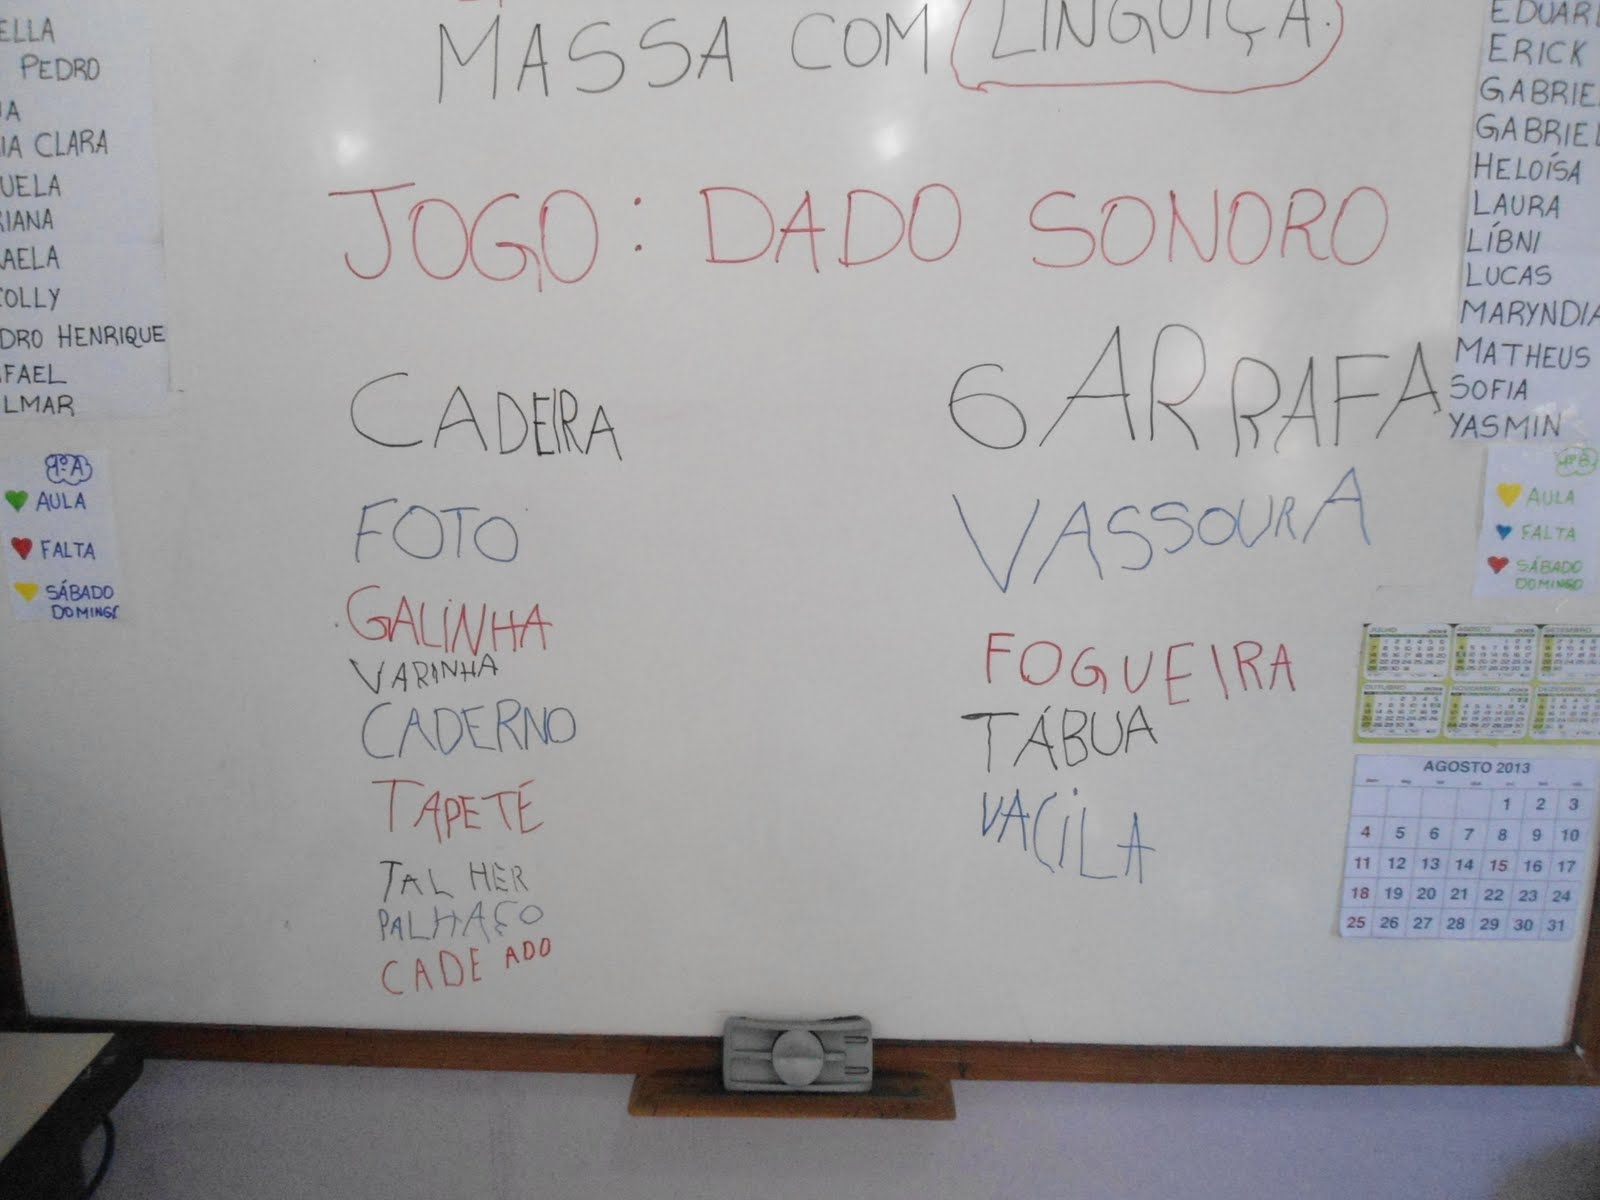 MASSA COM LINGUIÇA.
JOGO: DADO SONORO
CADEIRA
FOTO
GALINHA
VARINHA
CADERNO
TAPETÉ
TAL HER
PALHAÇO
CADE ADO
GARRAFA
VASSOURA
FOGUEIRA
TÁBUA
VACILA
ELLA
PEDRO
IA CLARA
UELA
RIANA
AELA
COLLY
DRO HENRIQUE
FAEL
LMAR
1º A
AULA
FALTA
SÁBADO
DOMINGO
EDUAR
ERICK
GABRIEL
GABRIEL
HELOÍSA
LAURA
LÍBNI
LUCAS
MARYNDIA
MATHEUS
SOFIA
YASMIN
1º B
AULA
FALTA
SÁBADO
DOMINGO
JULHO AGOSTO SETEMBRO
OUTUBRO NOVEMBRO DEZEMBRO
AGOSTO 2013
1 2 3
4 5 6 7 8 9 10
11 12 13 14 15 16 17
18 19 20 21 22 23 24
25 26 27 28 29 30 31